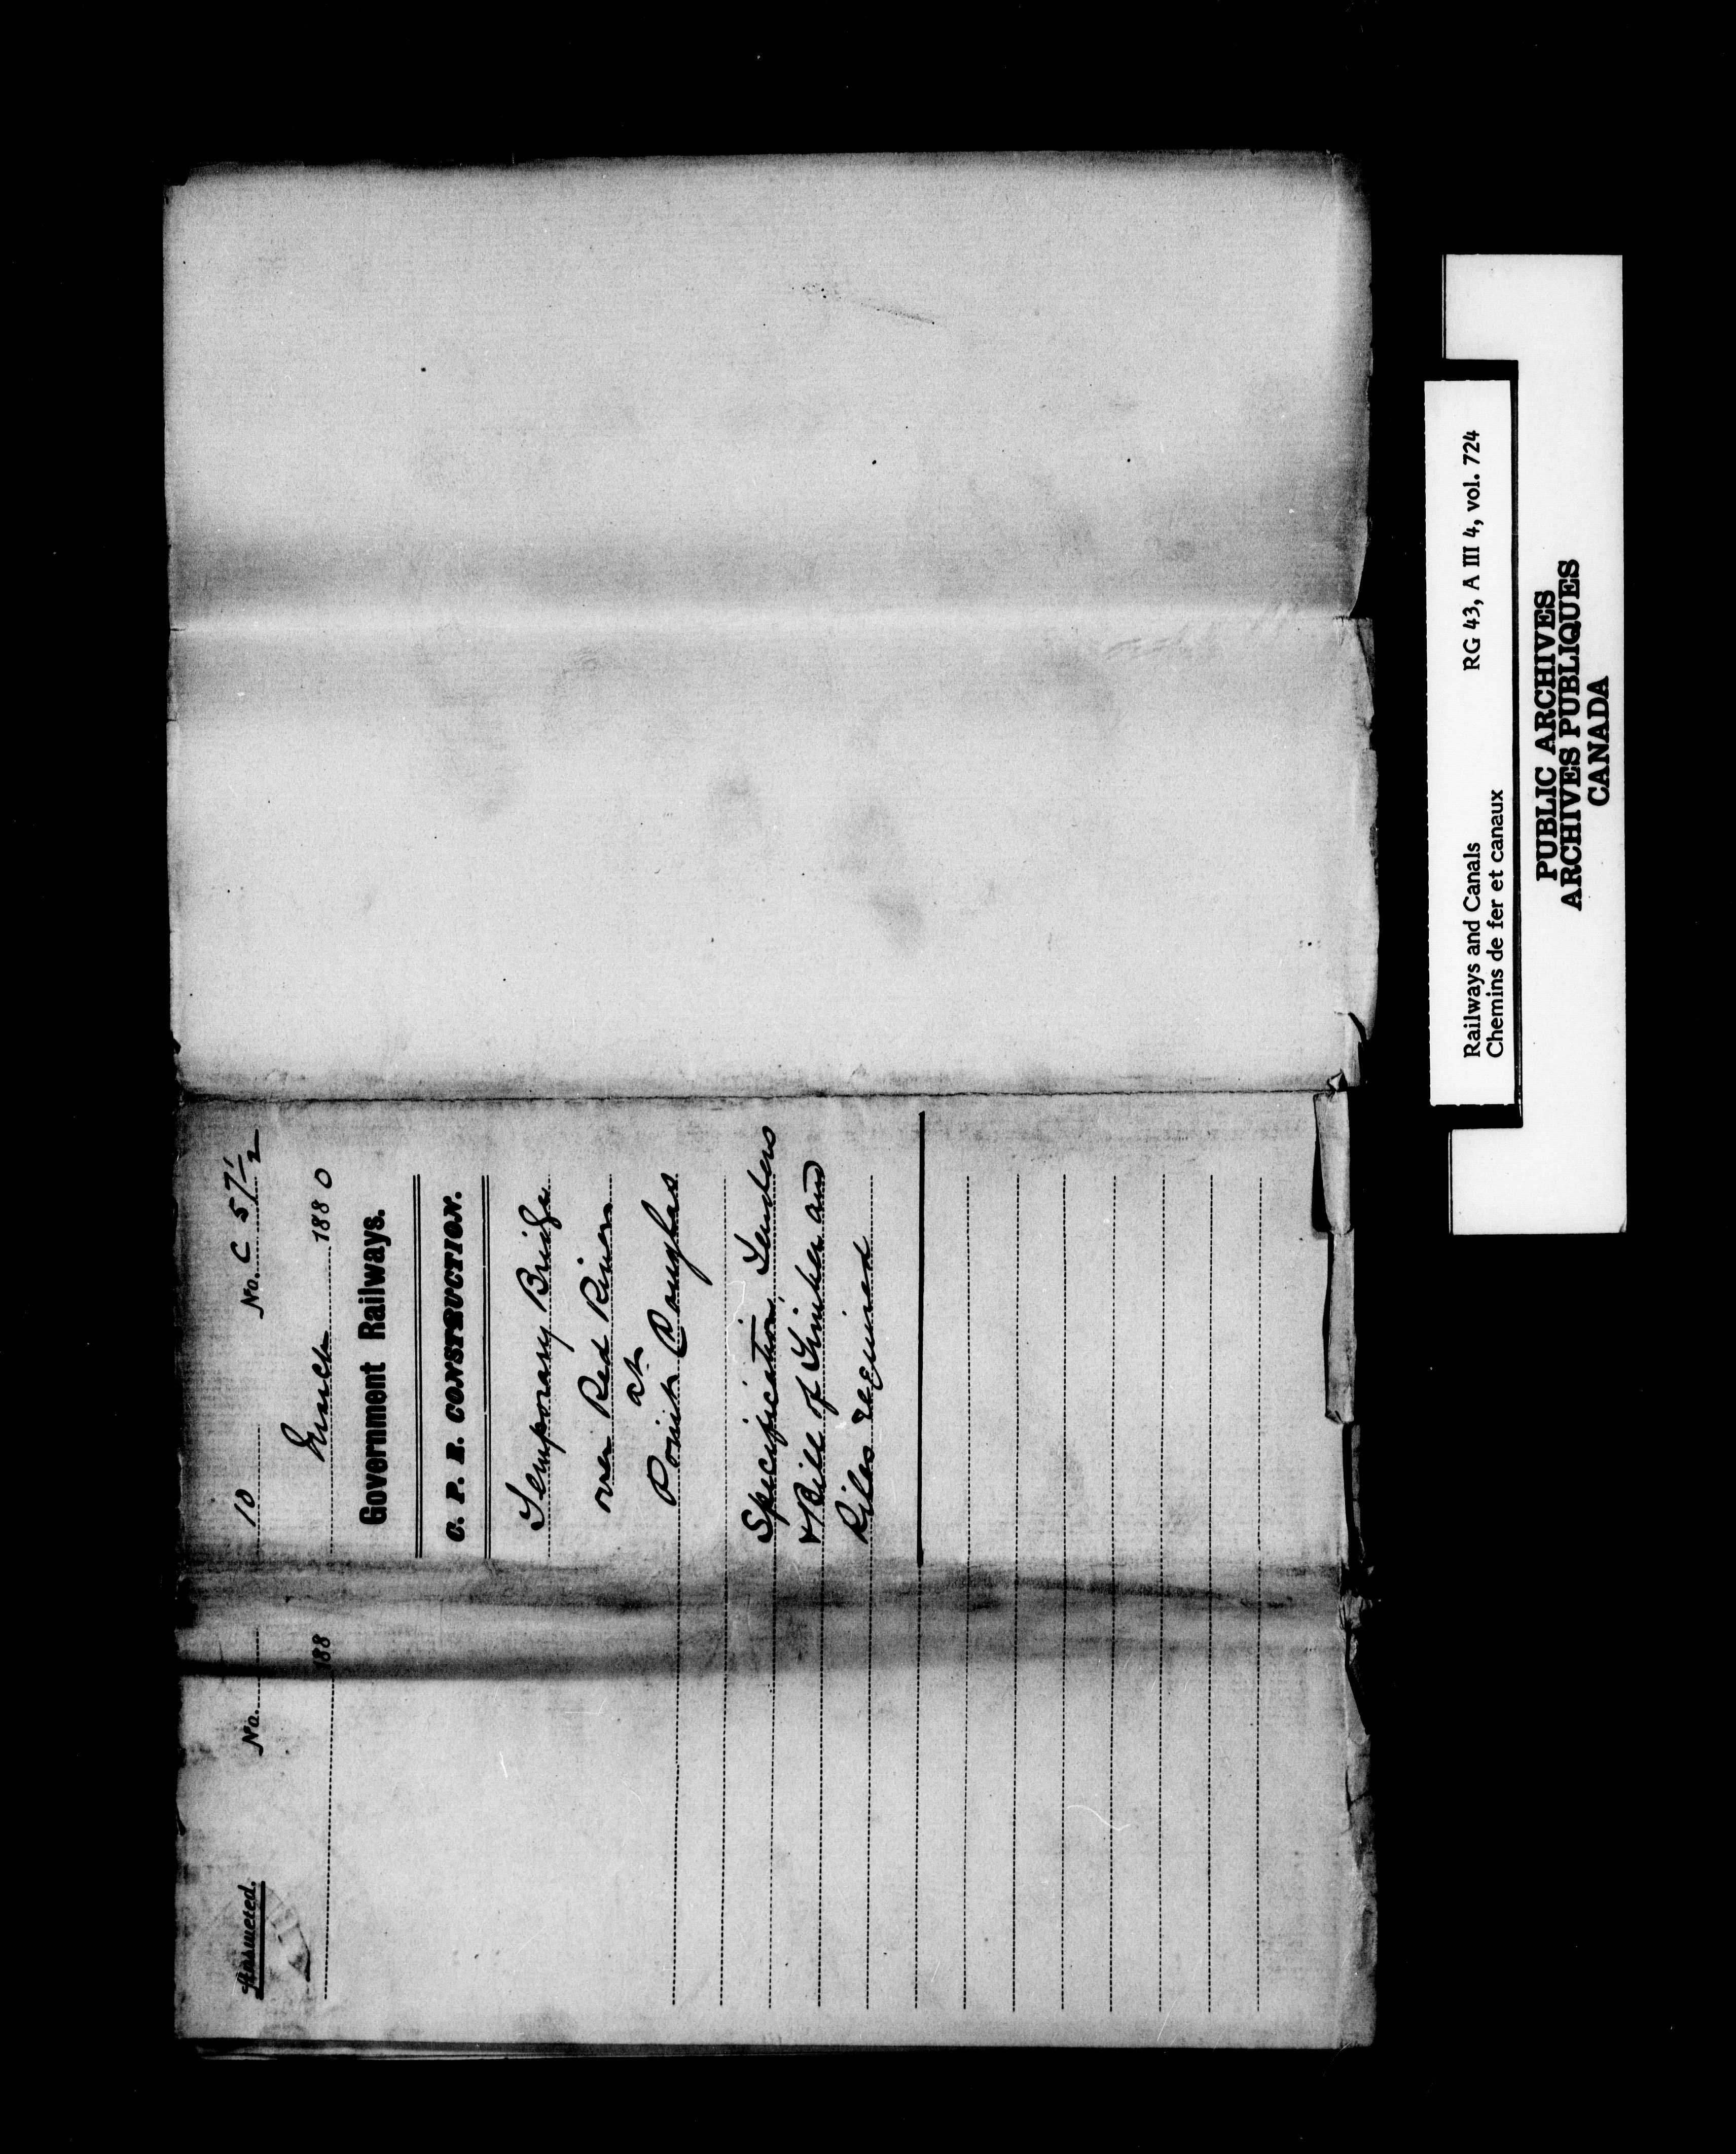 10 No. C 57 1/2
1880
Government Railways.
C. P. R. CONSTRUCTION.
Temporary Bridge
over Red River
at
Point Douglas
Specification, Tenders
& Bill of Timber and
Piles required
Answered. No.
188
Railways and Canals RG 43, A III 4, vol. 724
Chemins de fer et canaux
PUBLIC ARCHIVES
ARCHIVES PUBLIQUES
CANADA